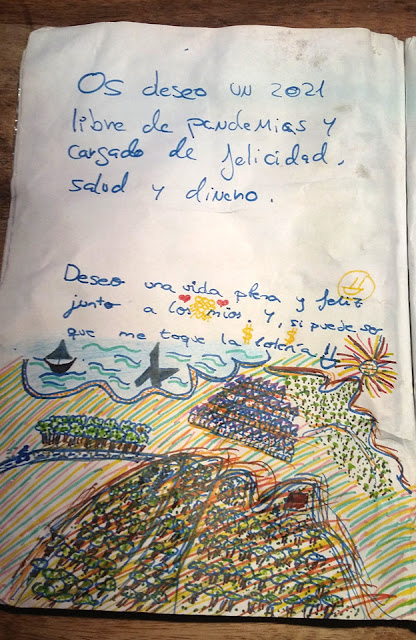 Os deseo un 2021
libre de pandemias y
cargado de felicidad,
salud y dinero.
Deseo una vida plena y feliz
junto a los míos. Y, si puede ser
que me toque la lotería!!